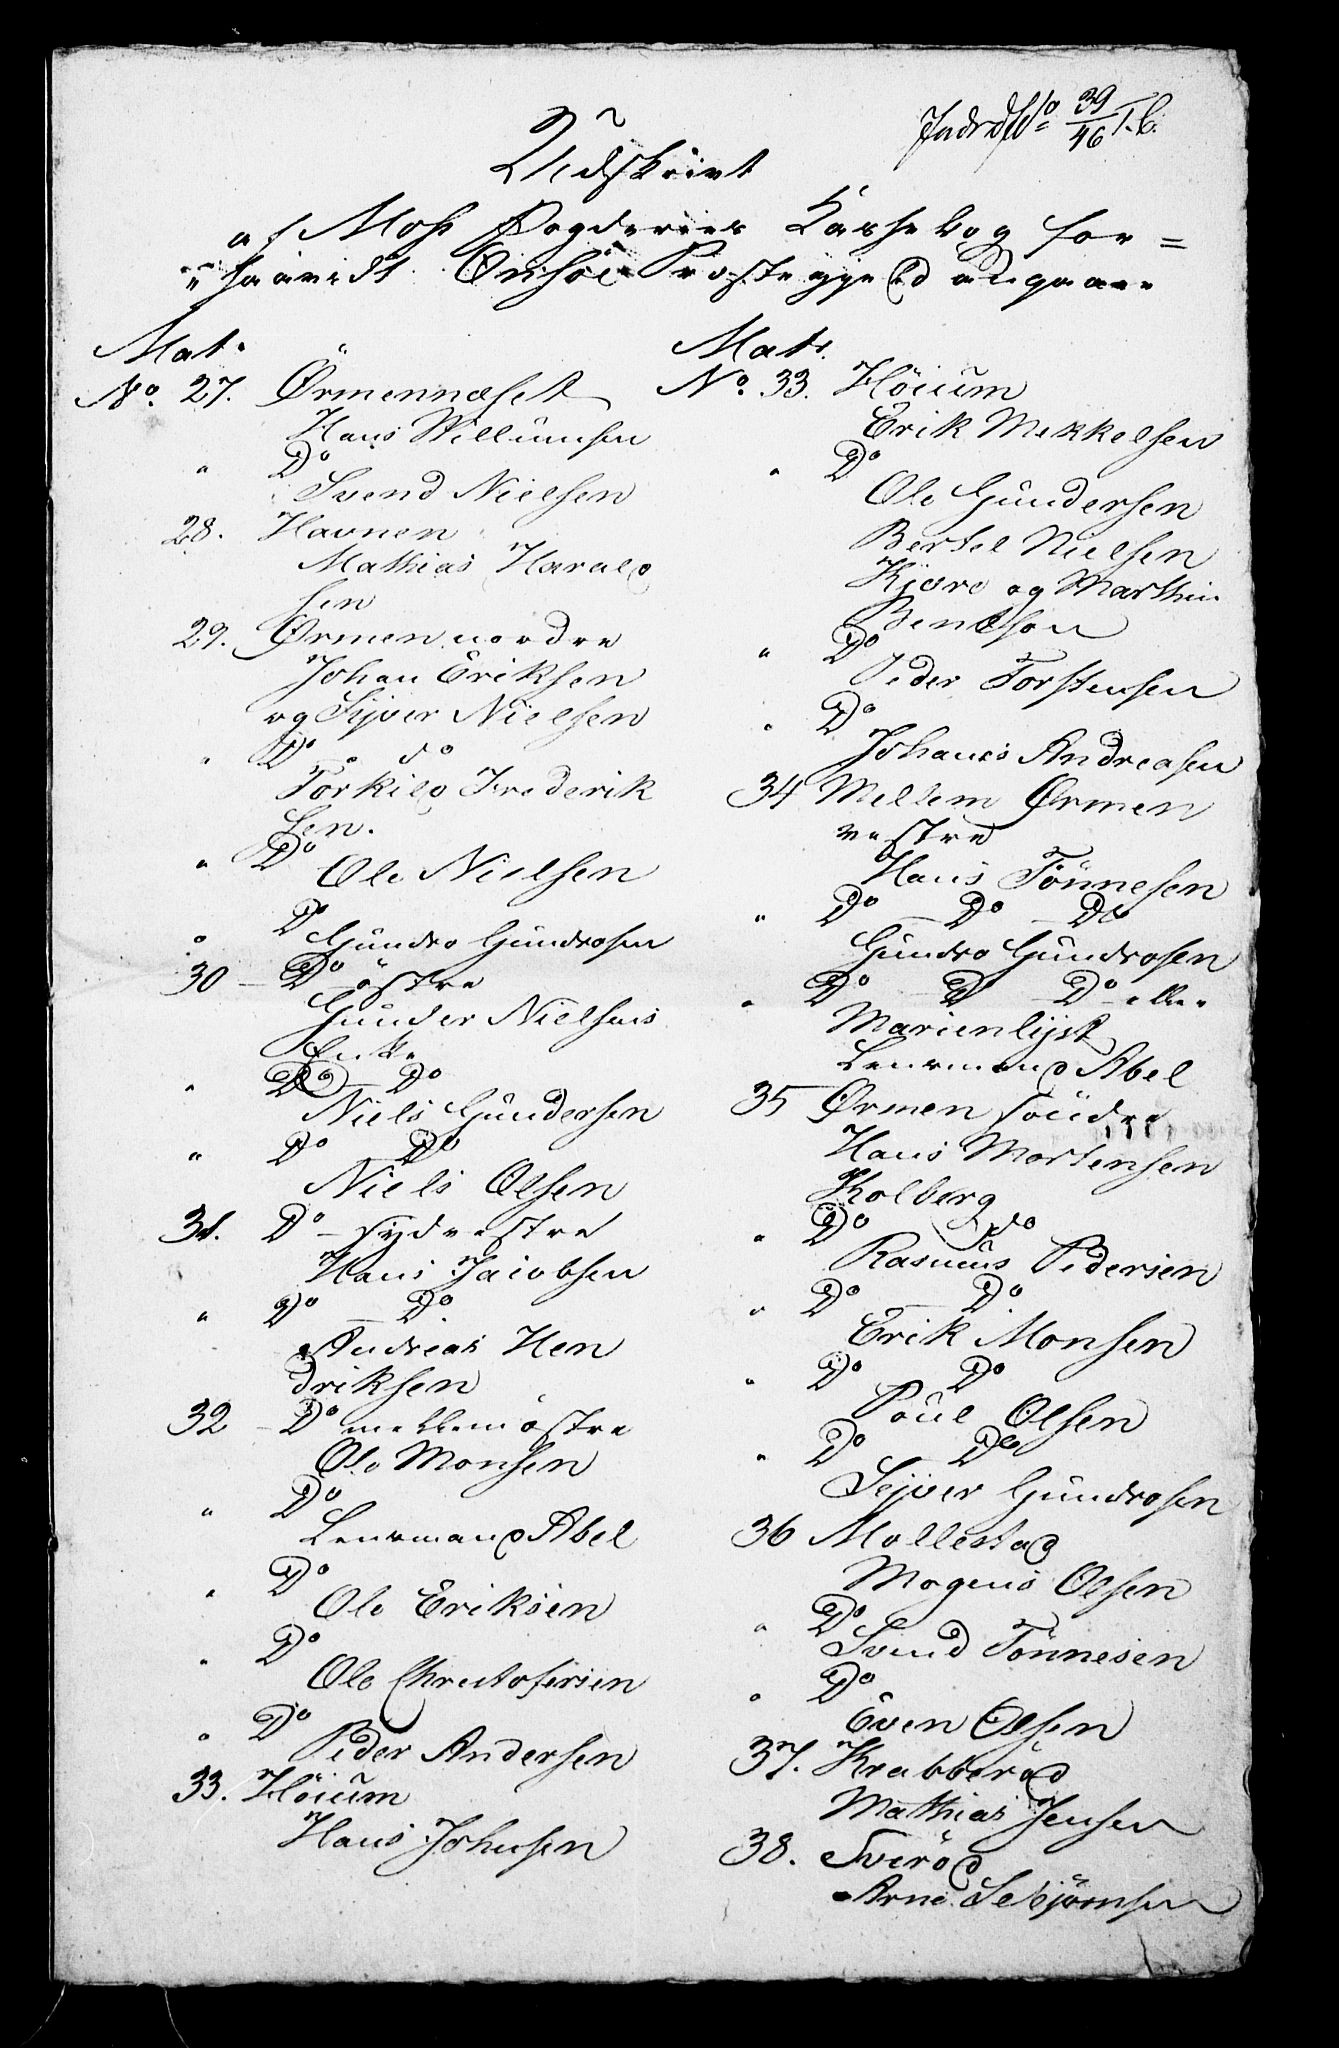 39
46
Udskrivt
af Moss Fogderies Kassebog for=
saavidt Onsöe Præstegjeld angaaer
Mat.
No. 27. Ørmennæset
Hans Willumsen
" Do
Svend Nielsen
28. Havnen
Mathias Harald
sen
29. Ørmen nordre
Johan Eriksen
og Sijver Nielsen
" Do do
Torkild Frederik
sen.
" Do
Ole Nielsen
" Do
Gundro Gundrosen
30 – Do östre
Gunder Nielsens
Enke
" Do Do
Niels Gundersen
" Do Do
Niels Olsen
31. Do – sydvestre
Hans Jacobsen
" Do Do
Andreas Hen
driksen
32 – Do mellemöstre
Ole Monsen
" Do
Lensmand Abel
" Do
Ole Eriksen
" Do
Ole Christofersen
" Do
Peder Andersen
33. Höium
Hans Johnsen
Matr.
No. 33. Höium
Erik Mekkelsen
" Do
Ole Gundersen
Bertel Nielsen
Kjöre og Marthin
Bentson
" Do
Peder Torstensen
" Do
Johanes Andreasen
34 Mellem Ørmen
vestre
Hans Tönnesen
" Do – Do – Do
Gundro Gundrosen
" Do – Do – Do – eller
Marienlijst
Lensmand Abel
35 Ørmen söndre
Hans Mortensen
Kolberg
" Do do
Rasmus Pedersen
" Do – Do
Erik Monsen
" Do Do
Poul Olsen
" Do Do
Sejver Gundrosen
36 Mollestad
Mogens Olsen
" Do
Svend Tönnesen
" Do
Even Olsen
37. Krabberöd
Mathias Jensen
38. Tveröd
Arne Sebjörnsen